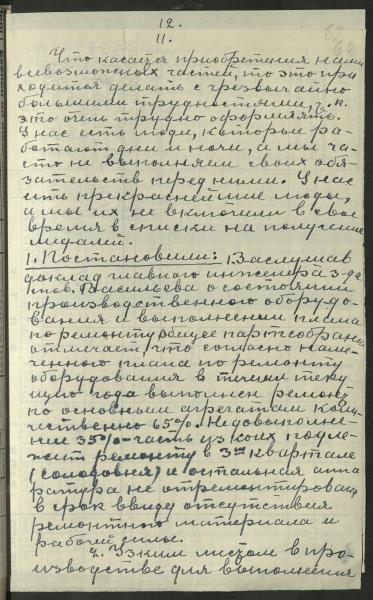 12.
11.
Что касается приобретения нами
всевозможных частей, то это при
ходится делать с чрезвычайно
большими трудностями, т.к.
это очень трудно оформлять.
У нас есть люди, которые ра-
ботают дни и ночи, а мы ча-
сто не выполняем своих обя-
зательств перед ними. У нас
есть прекраснейшие люды,
а мы их не включили в свое
время в списки на получение
медалей.
1. Постановили: 1. Заслушав
доклад главного инженера з-да
тов. Васильева о состоянии
производственного оборудо-
вания и выполнении плана
по ремонту общее партсобрание
отмечает, что согласно наме-
ченного плана по ремонту
оборудования в течении теку
щего года выполнен ремонт
по основным агрегатам коли
чественно 65%. Недовыполне-
ние 35%-часть из коих подле-
жит ремонту в 3м квартале
(солодовня) и остальная аппа
ратура не отремонтирована
в срок ввиду отсутствия
ремонтного материала и
рабочей силы.
2. Узким местом в про-
изводстве для выполнения